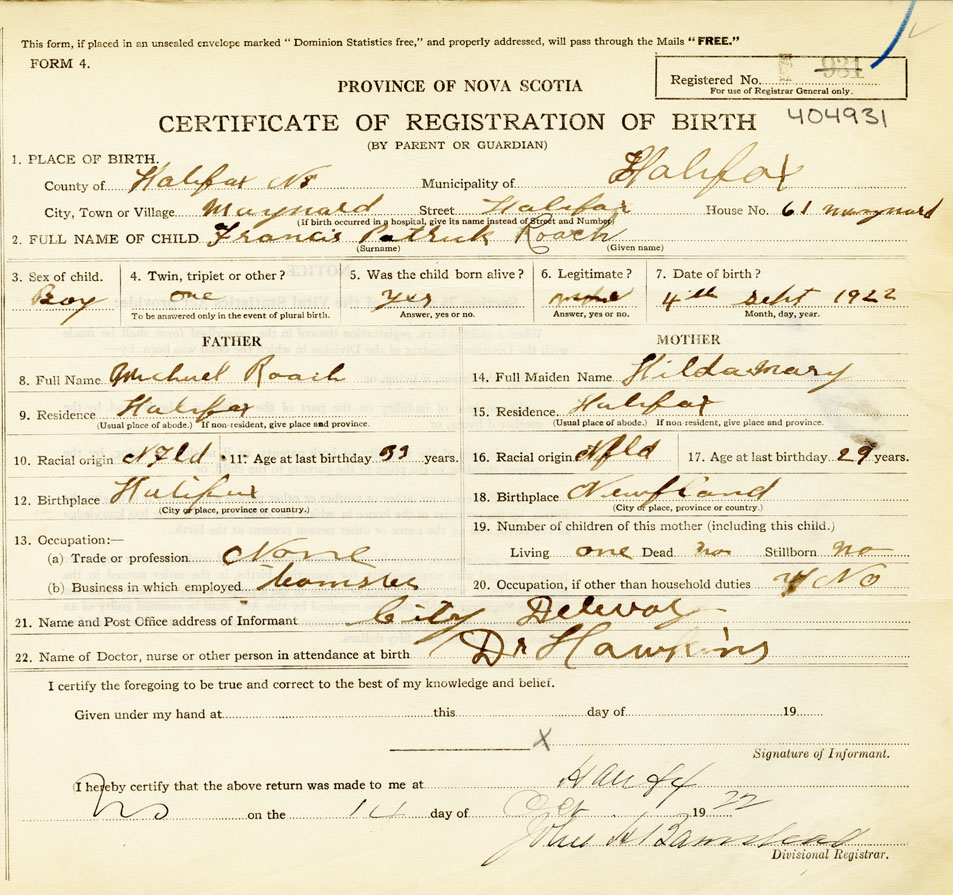 This form, if placed in an unsealed envelope marked "Dominion Statistics free," and properly addressed, will pass through the Mails "FREE."
FORM 4.
Registered No. 931
For use of Registrar General only.
PROVINCE OF NOVA SCOTIA
CERTIFICATE OF REGISTRATION OF BIRTH 404931
(BY PARENT OR GUARDIAN)
1. PLACE OF BIRTH.
County of Halifax NS Municipality of Halifax
City, Town or Village Maynard Street Halifax House No. 61 Maynard
(If birth occurred in a hospital, give its name instead of Street and Number)
2. FULL NAME OF CHILD Francis Patrick Roach
(Surname) (Given name)
3. Sex of child. 4. Twin, triplet or other? 5. Was the child born alive? 6. Legitimate? 7. Date of birth?
Boy one yes 4th Sept 1922
To be answered only in the event of plural birth. Answer, yes or no. Answer, yes or no. Month, day, year.
FATHER MOTHER
8. Full Name Michael Roach 14. Full Maiden Name Hilda Mary
9. Residence Halifax 15. Residence Halifax
(Usual place of abode.) If non-resident, give place and province. (Usual place of abode.) If non-resident, give place and province.
10. Racial origin NFld 11. Age at last birthday 33 years. 16. Racial origin Nfld 17. Age at last birthday 29 years.
12. Birthplace Halifax 18. Birthplace Newfland
(City or place, province or country.) (City or place, province or country.)
13. Occupation:— 19. Number of children of this mother (including this child.)
(a) Trade or profession None Living one Dead Stillborn No
(b) Business in which employed 20. Occupation, if other than household duties No
21. Name and Post Office address of Informant City
22. Name of Doctor, nurse or other person in attendance at birth Dr Hawkins
I certify the foregoing to be true and correct to the best of my knowledge and belief.
Given under my hand at this day of 19
X
Signature of Informant.
I hereby certify that the above return was made to me at Halifax
NS on the 14 day of Oct 1922
John H Barnstead
Divisional Registrar.